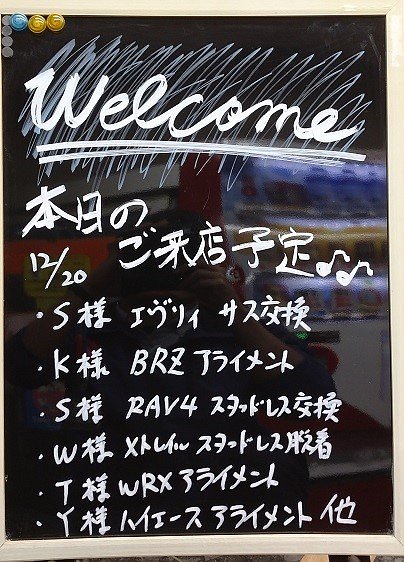 Welcome
本日の
12/20 ご来店予定♪♪
・S様 エヴリィ サス交換
・K様 BRZ アライメント
・S様 RAV4 スタッドレス交換
・W様 Xトレイル スタッドレス脱着
・T様 WRX アライメント
・Y様 ハイエース アライメント 他